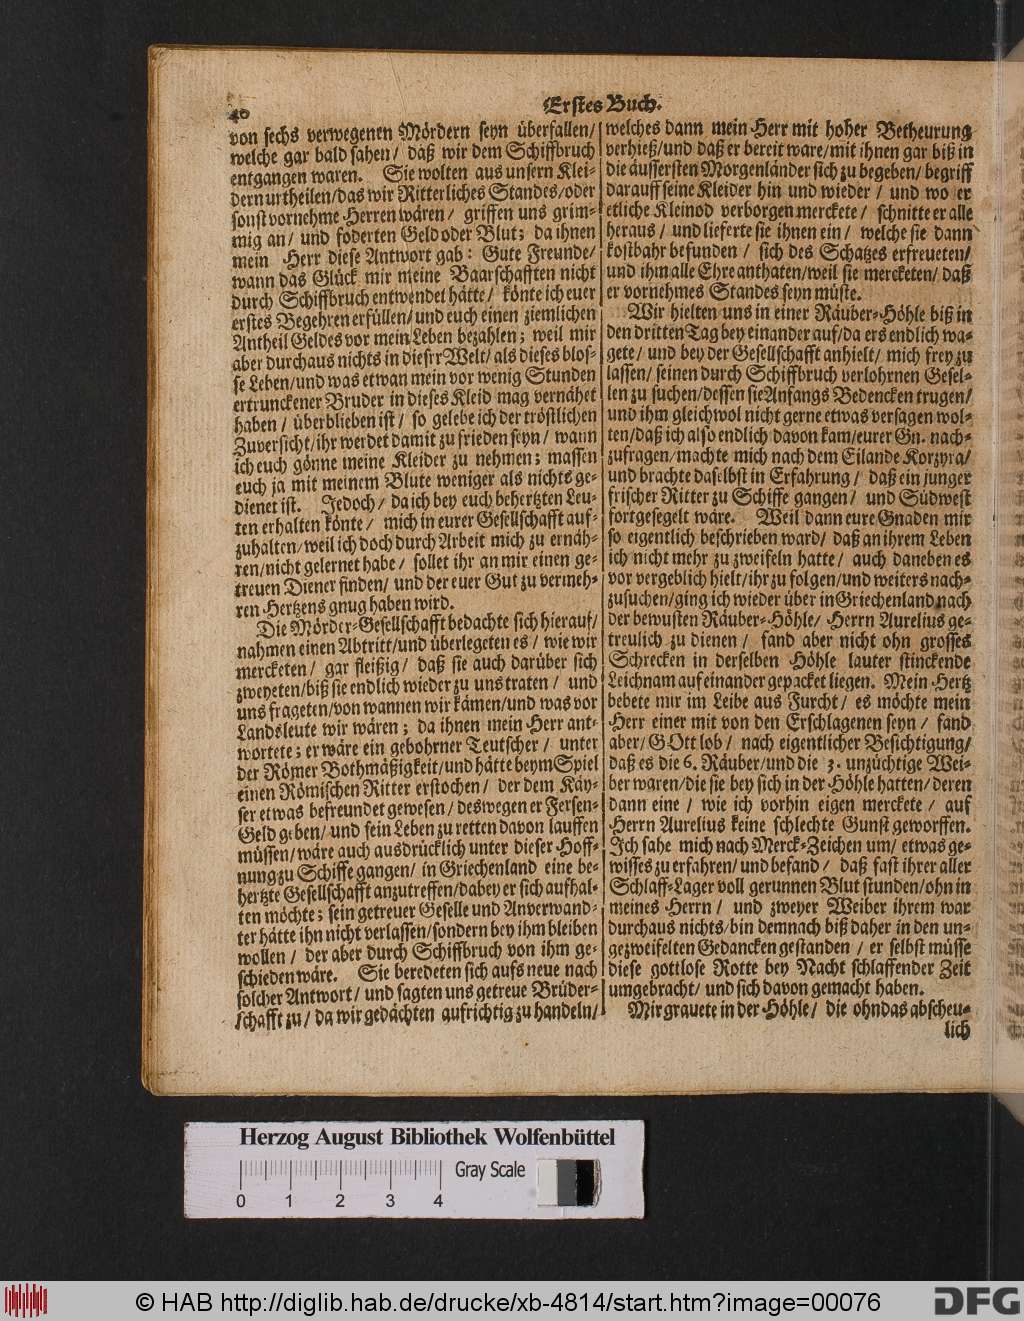 40
Erstes Buch.
von sechs verwegenen Mördern seyn überfallen/
welche gar bald sahen/ daß wir dem Schiffbruch
entgangen waren. Sie wolten aus unsern Klei-
dern urtheilen/das wir Ritterliches Standes/oder
sonst vornehme Herren wären/ griffen uns grim-
mig an/ und foderten Geld oder Blut; da ihnen
mein Herr diese Antwort gab: Gute Freunde/
wann das Glück mir meine Baarschafften nicht
durch Schiffbruch entwendet hätte/ könte ich euer
erstes Begehren erfüllen/und euch einen ziemlichen
Antheil Geldes vor mein Leben bezahlen; weil mir
aber durchaus nichts in dieser Welt/ als dieses blos-
se Leben/und was etwan mein vor wenig Stunden
ertrunckener Bruder in dieses Kleid mag vernähet
haben/ überblieben ist/ so gelebe ich der tröstlichen
Zuversicht/ihr werdet damit zu frieden seyn/ wann
ich euch gönne meine Kleider zu nehmen; massen
euch ja mit meinem Blute weniger als nichts ge-
dienet ist. Jedoch/ da ich bey euch behertzten Leu-
ten erhalten könte/ mich in eurer Gesellschafft auf-
zuhalten/weil ich doch durch Arbeit mich zu ernäh-
ren/nicht gelernet habe/ sollet ihr an mir einen ge-
treuen Diener finden/ und der euer Gut zu vermeh-
ren Hertzens gnug haben wird.
Die Mörder-Gesellschafft bedachte sich hierauf/
nahmen einen Abtritt/und überlegeten es/ wie wir
mercketen/ gar fleißig/ daß sie auch darüber sich
zweyeten/biß sie endlich wieder zu uns traten/ und
uns frageten/von wannen wir kämen/und was vor
Landsleute wir wären; da ihnen mein Herr ant-
wortete; er wäre ein gebohrner Teutscher/ unter
der Römer Bothmäßigkeit/und hätte beym Spiel
einen Römischen Ritter erstochen/ der dem Käy-
ser etwas befreundet gewesen/ deswegen er Fersen-
Geld geben/ und sein Leben zu retten davon lauffen
müssen/wäre auch ausdrücklich unter dieser Hoff-
nung zu Schiffe gangen/ in Griechenland eine be-
hertzte Gesellschafft anzutreffen/dabey er sich aufhal-
ten möchte; sein getreuer Geselle und Anverwand-
ter hätte ihn nicht verlassen/sondern bey ihm bleiben
wollen/ der aber durch Schiffbruch von ihm ge-
schieden wäre. Sie beredeten sich aufs neue nach
solcher Antwort/ und sagten uns getreue Brüder-
schafft zu/ da wir gedächten aufrichtig zu handeln/
welches dann mein Herr mit hoher Betheurung
verhieß/und daß er bereit ware/mit ihnen gar biß in
die äussersten Morgenländer sich zu begeben/ begriff
darauff seine Kleider hin und wieder/ und wo er
etliche Kleinod verborgen merckete/ schnitte er alle
heraus/ und lieferte sie ihnen ein/ welche sie dann
kostbahr befunden/ sich des Schatzes erfreueten/
und ihm alle Ehre anthaten/weil sie mercketen/ daß
er vornehmes Standes seyn müste.
Wir hielten uns in einer Räuber-Höhle biß in
den dritten Tag bey einander auf/da ers endlich wa-
gete/ und bey der Gesellschafft anhielt/ mich frey zu
lassen/ seinen durch Schiffbruch verlohrnen Gesel-
len zu suchen/dessen sie Anfangs Bedencken trugen/
und ihm gleichwol nicht gerne etwas versagen wol-
ten/daß ich also endlich davon kam/eurer Gn. nach-
zufragen/machte mich nach dem Eilande Korzyra/
und brachte daselbst in Erfahrung/ daß ein junger
frischer Ritter zu Schiffe gangen/ und Südwest
fortgesegelt wäre. Weil dann eure Gnaden mir
so eigentlich beschrieben ward/ daß an ihrem Leben
ich nicht mehr zu zweifeln hatte/ auch daneben es
vor vergeblich hielt/ihr zu folgen/und weiters nach-
zusuchen/ging ich wieder über in Griechenland nach
der bewusten Räuber-Höhle/ Herrn Aurelius ge-
treulich zu dienen/ fand aber nicht ohn grosses
Schrecken in derselben Höhle lauter stinckende
Leichnam auf einander gepacket liegen. Mein Hertz
bebete mir im Leibe aus Furcht/ es möchte mein
Herr einer mit von den Erschlagenen seyn/ fand
aber/ GOtt lob/ nach eigentlicher Besichtigung/
daß es die 6. Räuber/und die 3. unzüchtige Wei-
ber waren/die sie bey sich in der Höhle hatten/ deren
dann eine/ wie ich vorhin eigen merckete/ auf
Herrn Aurelius keine schlechte Gunst geworffen.
Ich sahe mich nach Merck-Zeichen um/ etwas ge-
wisses zu erfahren/ und befand/ daß fast ihrer aller
Schlaff-Lager voll gerunnen Blut stunden/ohn in
meines Herrn/ und zweyer Weiber ihrem war
durchaus nichts/bin demnach biß daher in den un-
gezweifelten Gedancken gestanden/ er selbst müsse
diese gottlose Rotte bey Nacht schlaffender Zeit
umgebracht/ und sich davon gemacht haben.
Mir grauete in der Höhle/ die ohndas abscheu-
lich
Herzog August Bibliothek Wolfenbüttel
Gray Scale
0 1 2 3 4
© HAB http://diglib.hab.de/drucke/xb-4814/start.htm?image=00076
DFG